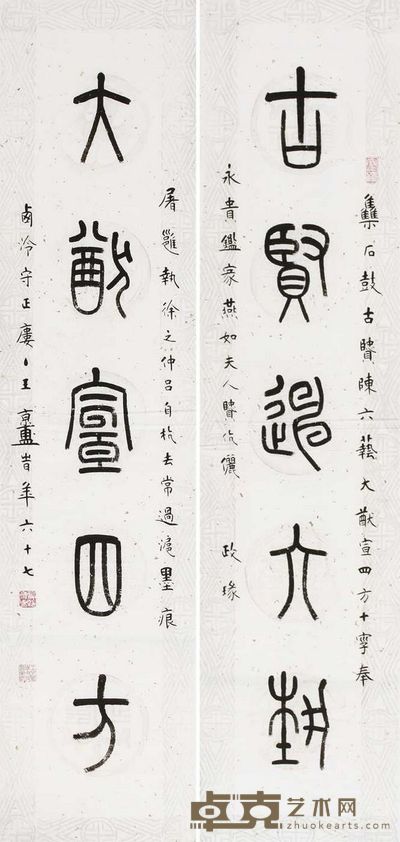 雧石鼓古賢陳六藝大猷宣四方十字奉
古賢陳六埶
永貴鑑家燕如夫人賢伉儷 政瑑
屠維執徐之仲呂自杭去常過滬墨痕
大猷宣四方
西泠守正廔丶王京盙昔年六十七
卓克艺术网
zhuokearts.com